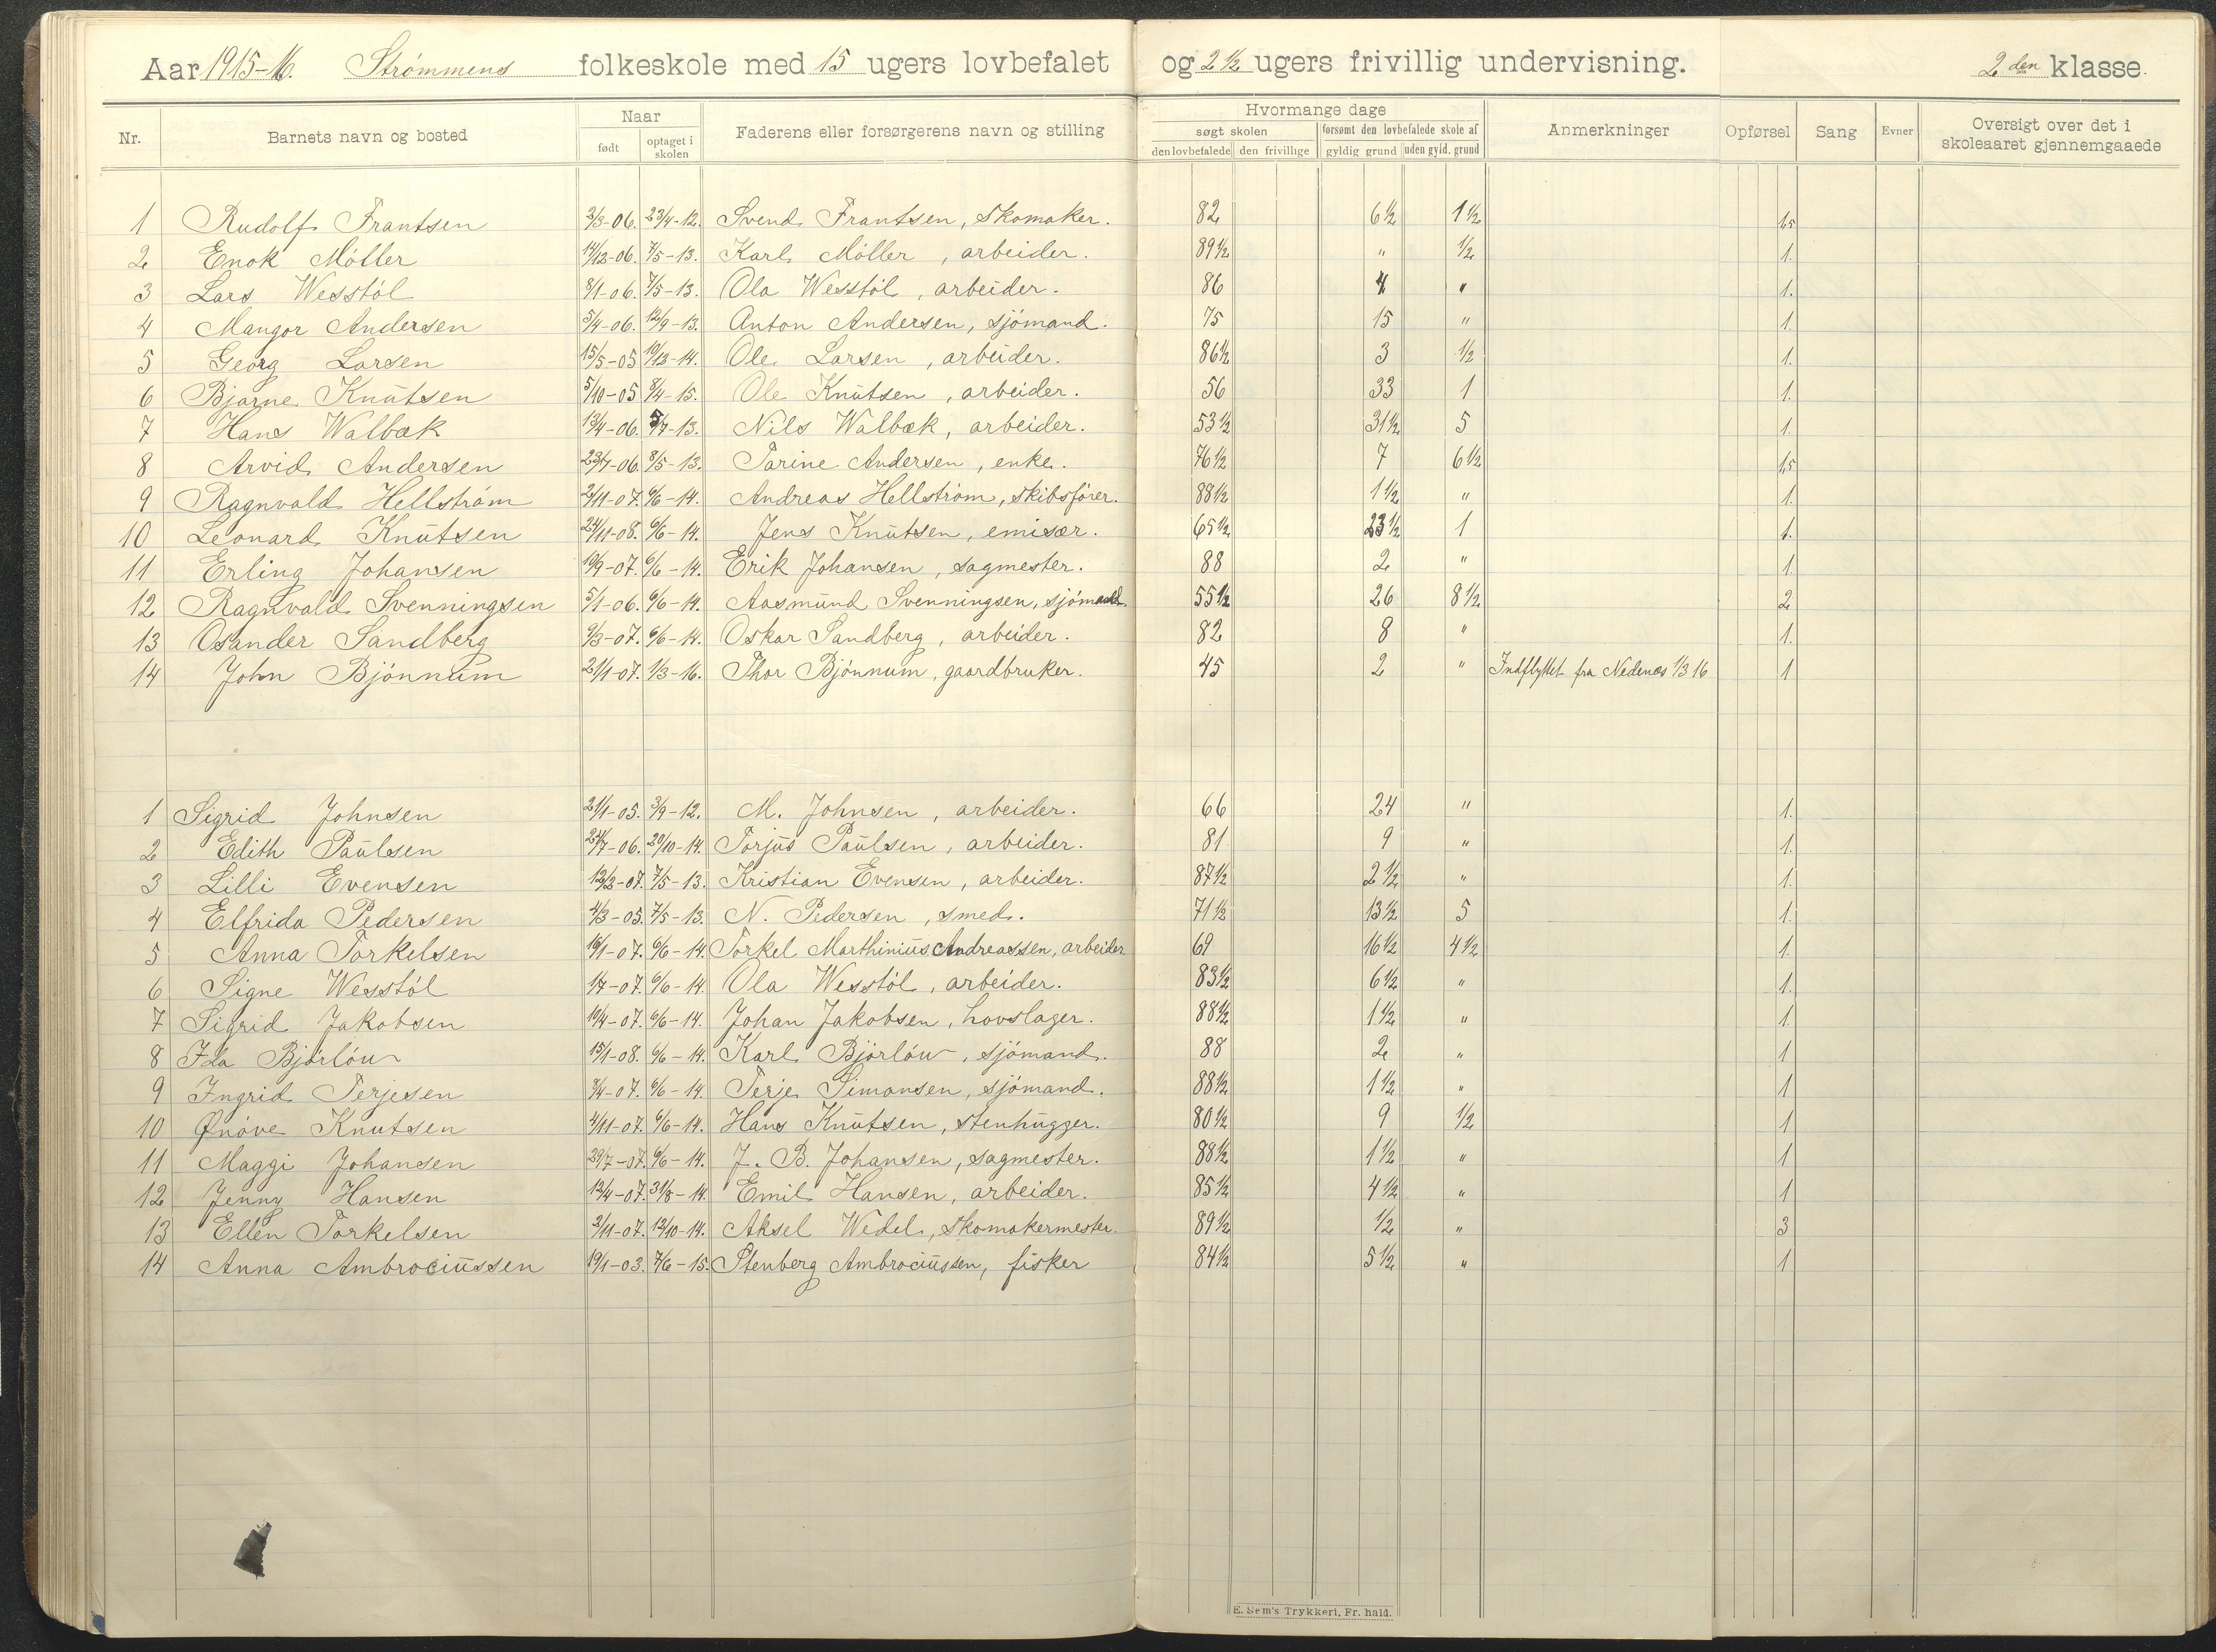 Aar 1915-16. Strømmens folkeskole med 15 ugers lovbefalet og 2 ½ ugers frivillig undervisning. 2den klasse.
Nr. Barnets navn og bosted Naar født optaget i skolen Faderens eller forsørgerens navn og stilling Hvormange dage søgt skolen den lovbefalede den frivillige forsømt den lovbefalede skole af gyldig grund uden gyld. grund Anmerkninger Opførsel Sang Evner Oversigt over det i skoleaaret gjennemgaaede
1 Rudolf Frantsen 2/3-06. 23/4-12. Svend Frantsen, skomaker. 82 6½ 1½ 1,5
2 Enok Møller 14/12-06. 7/5-13. Karl Møller, arbeider. 89½ " ½ 1.
3 Lars Wesstøl 8/1-06. 7/5-13. Ola Wesstøl, arbeider. 86 4 " 1.
4 Mangor Andersen 5/4-06. 12/9-13. Anton Andersen, sjømand. 75 15 " 1.
5 Georg Larsen 15/5-05 10/12-14. Ole Larsen, arbeider. 86½ 3 ½ 1.
6 Bjarne Knutsen 5/10-05 8/4-15. Ole Knutsen, arbeider. 56 33 1 1.
7 Hans Walbæk 13/4-06. 5/7-13. Nils Walbæk, arbeider. 53½ 31½ 5 1.
8 Arvid Andersen 23/7-06. 8/5-13. Tarine Andersen, enke. 76½ 7 6½ 1,5
9 Ragnvald Hellstrøm 2/11-07. 6/6-14. Andreas Hellstrøm, skibsfører. 88½ 1½ " 1.
10 Leonard Knutsen 24/11-08. 6/6-14. Jens Knutsen, emisær. 65½ 23½ 1 1.
11 Erling Johansen 10/9-07. 6/6-14. Erik Johansen, sagmester. 88 2 " 1.
12 Ragnvald Svenningsen 5/1-06. 6/6-14. Aasmund Svenningsen, sjømand. 55½ 26 8½ 2
13 Osander Sandberg 9/3-07. 6/6-14. Oskar Sandberg, arbeider. 82 8 " 1.
14 John Bjønnum 21/1-07. 1/3-16. Thor Bjønnum, gaardbruker. 45 2 " Indflyttet fra Nedenæs 1/3 16 1
1 Sigrid Johnsen 21/1-05. 3/9-12. M. Johnsen, arbeider. 66 24 " 1.
2 Edith Paulsen 24/7-06. 20/10-14. Torjus Paulsen, arbeider. 81. 9 " 1.
3 Lilli Evensen 12/2-07. 7/5-13. Kristian Evensen, arbeider. 87½ 2½ " 1.
4 Elfrida Pedersen 4/3-05. 7/5-13. N. Pedersen, smed. 71½ 13½ 5 1.
5 Anna Torkelsen 16/1-07. 6/6-14. Torkel Marthinius Andreassen, arbeider 69 16½ 4½ 1.
6 Signe Wesstøl 1/7-07. 6/6-14. Ola Wesstøl, arbeider. 83½ 6½ " 1.
7 Sigrid Jakobsen 10/4-07. 6/6-14. Johan Jakobsen, hovslager. 88½ 1½ " 1
8 Ida Bjørlöw 15/1-08. 6/6-14. Karl Bjørlöw, sjømand. 88 2 " 1
9 Ingrid Terjesen 8/4-07. 6/6-14. Terje Simonsen, sjømand. 88½ 1½ " 1
10 Ønøve Knutsen 4/11-07. 6/6-14. Hans Knutsen, stenhugger. 80½ 9 ½ 1
11 Maggi Johansen 29/7-07. 6/6-14. J. B. Johansen, sagmester. 88½ 1½ " 1
12 Jenny Hansen 13/4-07. 31/8-14. Emil Hansen, arbeider. 85½ 4½ " 1
13 Ellen Torkelsen 2/11-07. 12/10-14. Aksel Wedel, skomakermester. 89½ ½ " 3
14 Anna Ambrociussen 19/1-03. 7/6-15. Stenberg Ambrociussen, fisker 84½ 5½ " 1
E. Sem's Trykkeri, Fr. hald.